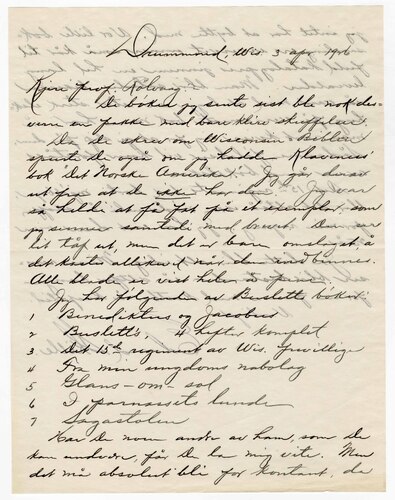 Drummond, Wis 3 apr. 1926
Kjære prof. Rølvaag.
De bøker jeg sente sist ble nok des-
verre en pakke med bare klire skuffelser.
Da De skrev om Wisconsin Bibles
spurte De også om jeg hadde Klavenes'
bok "Det Norske Amerika". Jeg går derav
ut fra at De ikke har den. Jeg var
så heldig at få fat på et eksemplar, som
jeg sender samtidi med brevet. Den ser
lit tåf ut, men det er bare omslaget å
det kastes allikevel når den indbinnes.
Alle blade er vist hele
Jeg har følgende av Buslett bøker:
1 Benediktus og Jacobus
2 Buslett's, 4 hefter komplet
3 Det 15de regiment av Wis. frivillige
4 Fra min ungdoms nabolag
5 Glans-om-sol
6 I parnassets lunde
7 Sagastolen
Har De noen andre av ham, som De
kan undvære, får De la mig vite. Men
det må absolut bli for kontant, da